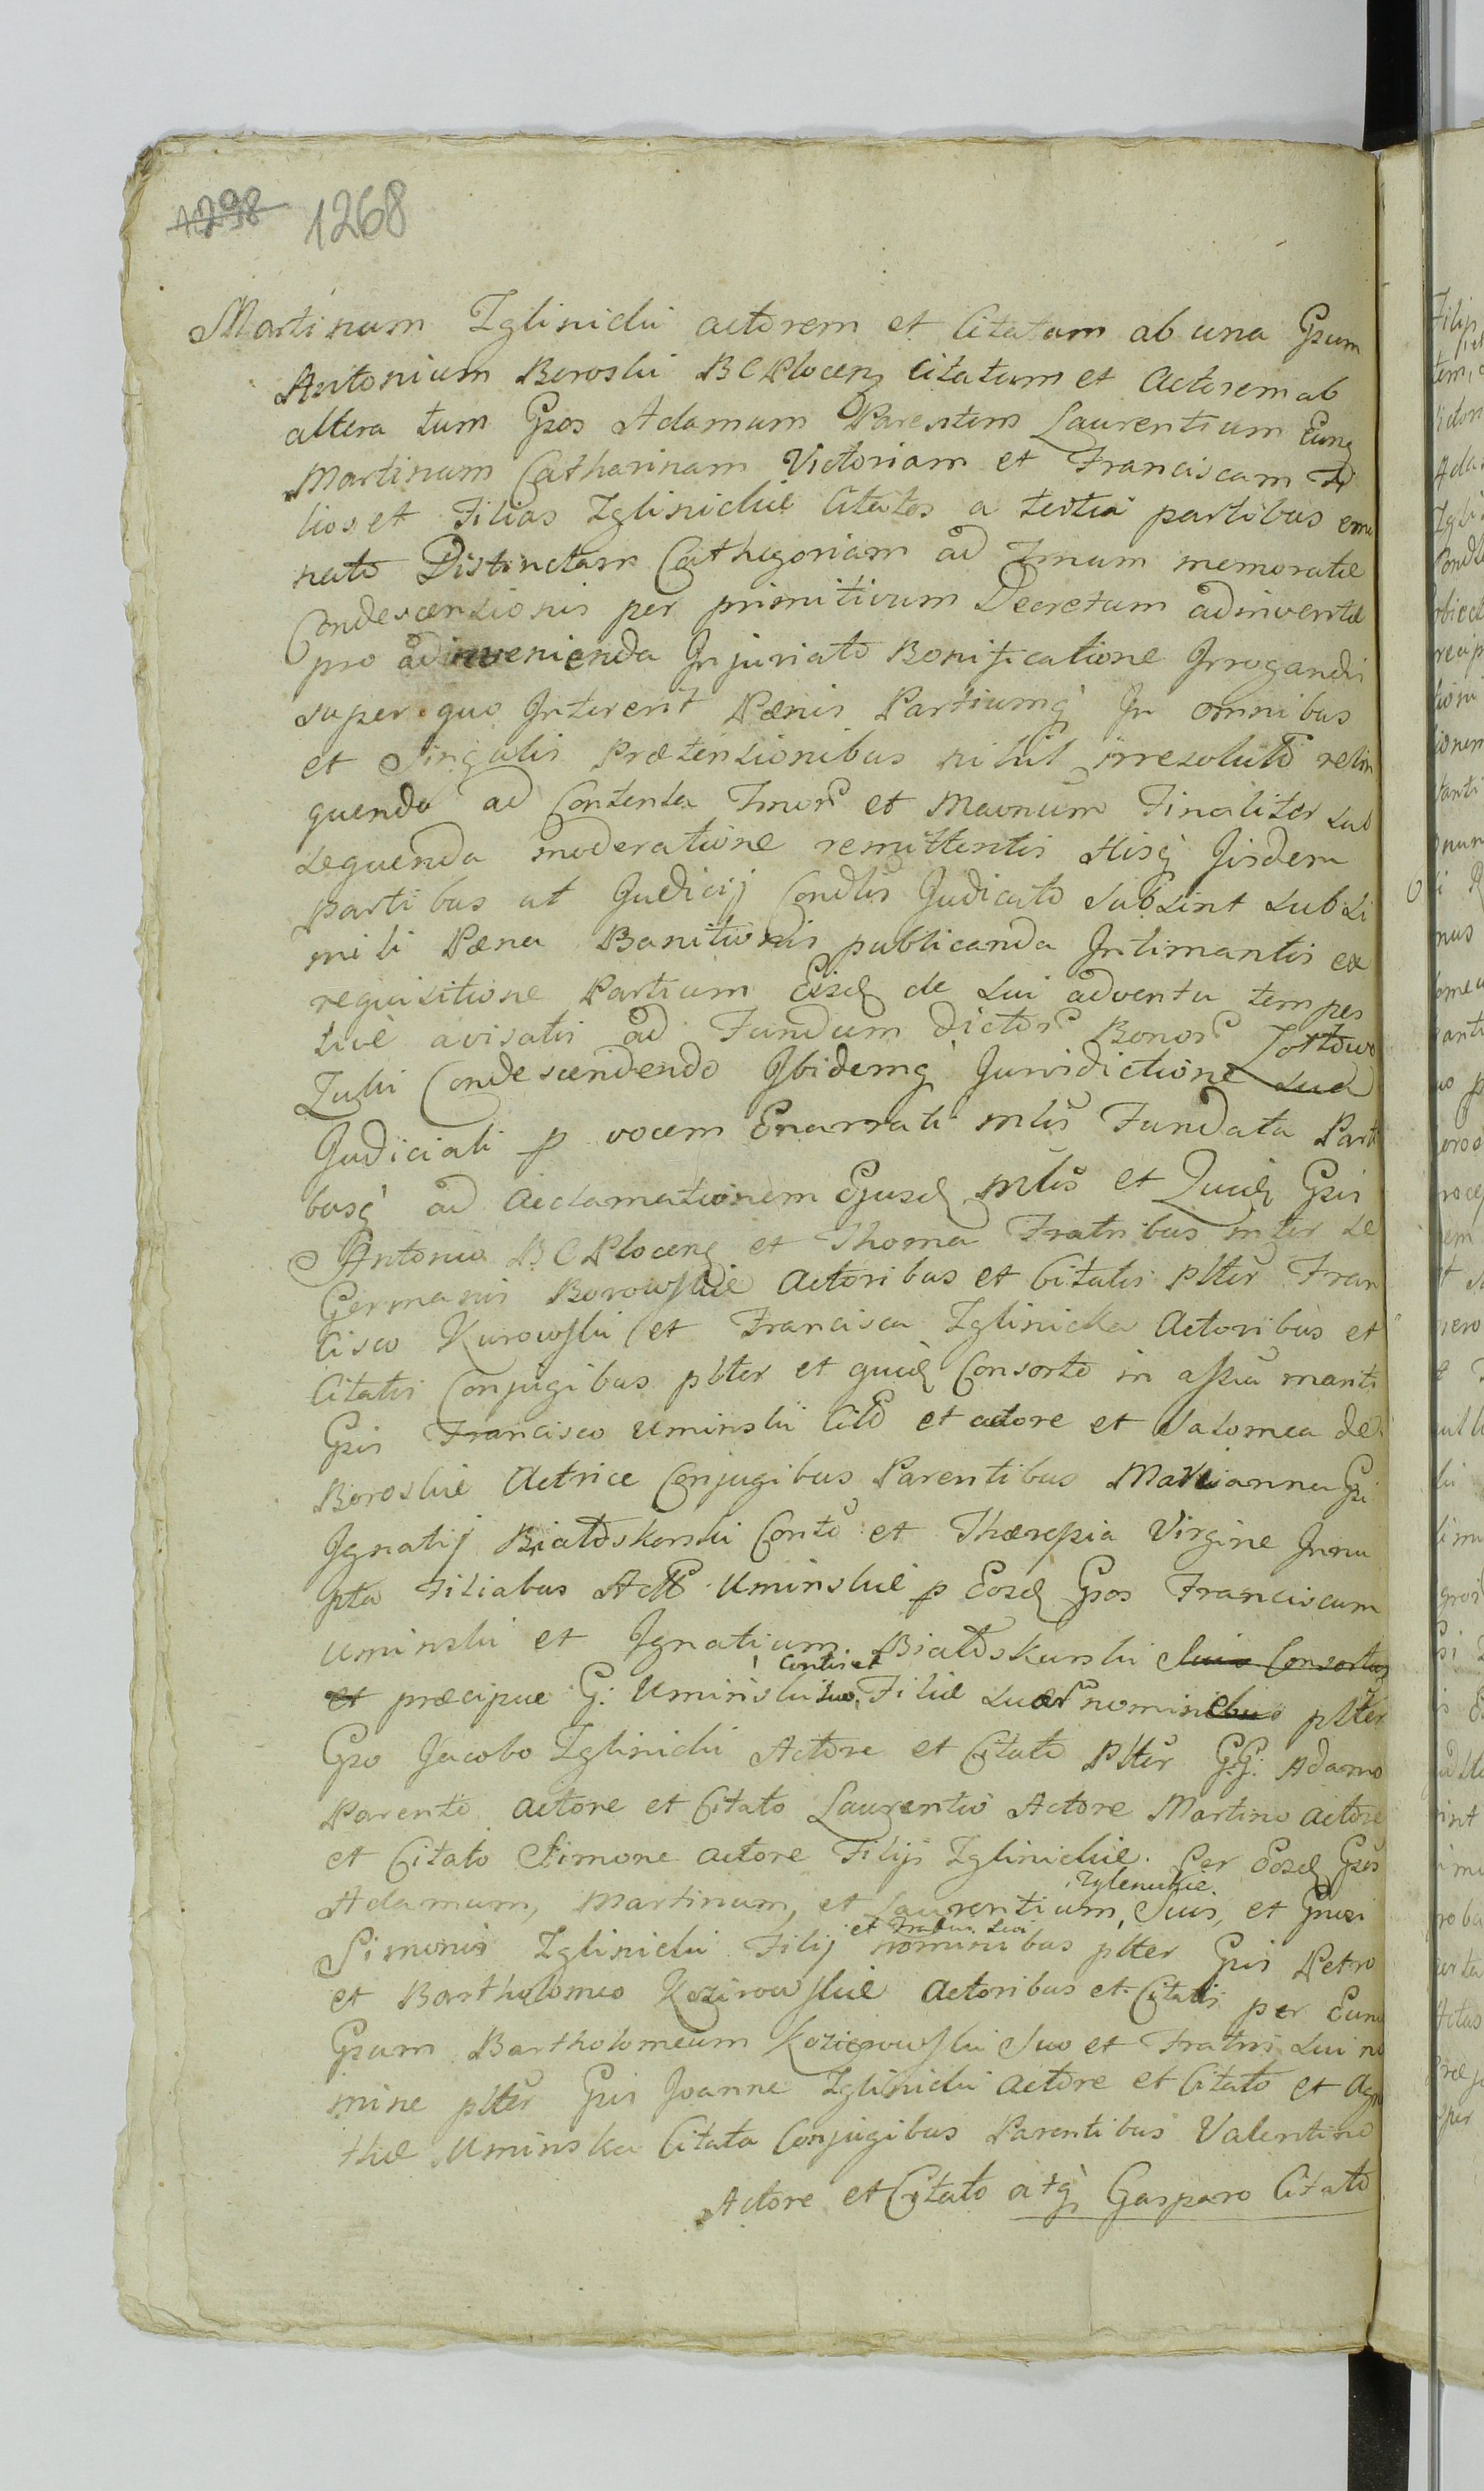 1298 1268
Martinum Zglinicki actorem et Citatum ab una Gsum
Antonium Boroski BCPlocen Citatum et Actorem ab
altera tum Gsos Adamum Parentem Laurentium Eund
Martinum Catharinam Victoriam et Franciscam Fi
lios et Filias Zglinickie Citatos a tertia partibus eme
nato Distinctam Cathegoriam ad Imum memoratæ
Condescensionis per primitivum Decretum adinventæ
pro adinvenienda Injuriato Bonificatione Irrogandis
super quo Intererit Pœnis Partiumq In omnibus
et Singulis Prætensionibus nihil irresoluto relin
quendo ad Contenta Imor et Mavnum Finaliter sub
sequenda moderatione remittentis Hisq Iisdem
partibus ut Judicij Condlis Judicato subsint sub si
mili Pœna Banitionis publicanda Intimantis ex
requisitione Partium Eisd de sui adventu tempes
tive avisatis ad Fundum dictor Bonor Zottowo
Zuki Condescendendo Ibidemq Jurisdictione sua
Judiciali p vocem Enarrati mlis Fundata Parti
busq ad acclamationem Ejusd mlis et Quid Gsis
Antonio BCPlocen et Thoma Fratribus inter se
Germanis Borowskie Actoribus et Citatis plter Fran
cisco Kurowski et Francisca Zglinicka Actoribus et
Citatis Conjugibus plter et quid Consorte in assia manti
Gsis Francisco Uminski Cito et actore et Salomea de
Boroskie Actrice Conjugibus Parentibus Marianna Gsi
Ignatij Białoskorski Conte et Thæresia Virgine Innu
pta Filiabus Act Uminskie p Eosd Gsos Franciscum
Uminski et Ignatium Białoskurski suis Consortus
Contis et
et præcipue G: Uminski suo Filiæ suær nominibus plter
Gso Jacobo Zglinicki Actore et Citato Plter G:G: Adamo
Parente actore et Citato Laurentio Actore Martino actore
et Citato Simone actore Filijs Zglinickie. Per Eosd Gsos
Zglenickie
Adamum, Martinum, et Laurentium, Suis, et Gnosi
et Fratris sui
Simonis Zglinicki Filij nominibus plter Gsis Petro
et Bartholomeo Kozirowskie Actoribus et Citatis per Eund
Gsum Bartholomeum Kozierowski Suo et Fratris sui no
mine plter Gsis Joanne Zglinicki actore et Citato et Aga
thæ Uminska Citata Conjugibus Parentibus Valentino
Actore et Citato atq Gasparo Citato